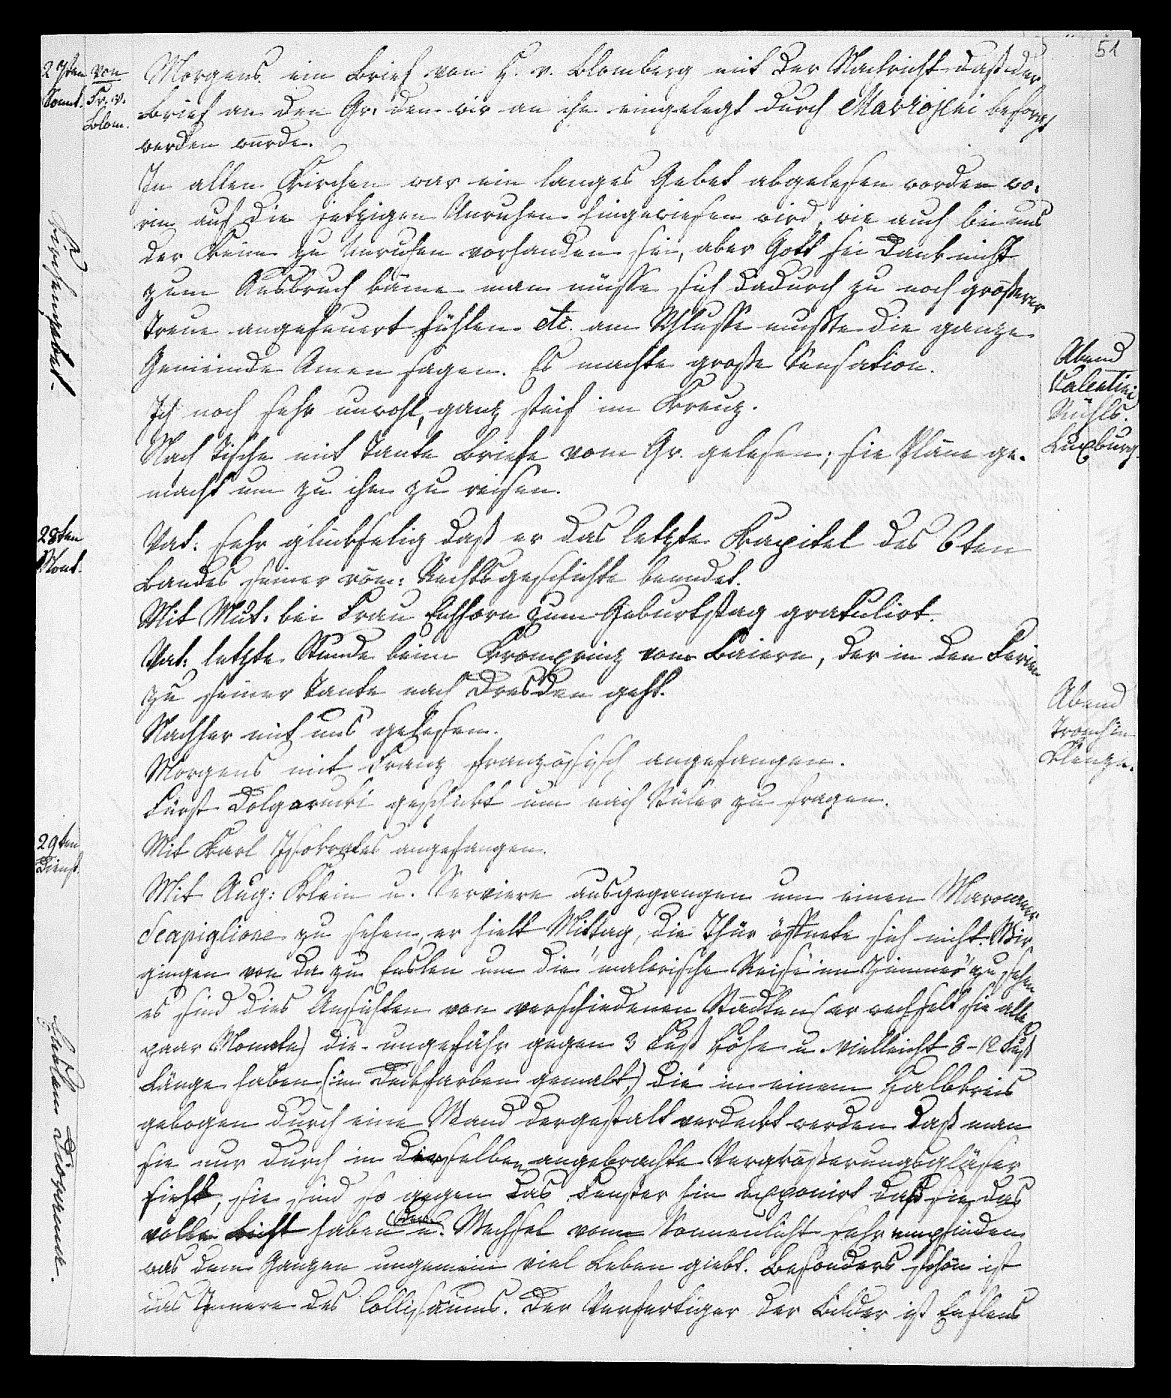 51
27sten von
Sonnt. Fr. v.
Blom.
Morgens ein Brief von H. v. Blomberg mit der Nachricht daß der
Brief an den Gr. den wir an ihn eingelegt durch besorgt
werden würde.
Kirchengebet.
In allen Kirchen war ein langes Gebet abgelesen worden wo-
rin auf die jetzigen Unruhen hingewiesen wird, wie auch bei uns
der Keim zu Unruhen vorhanden sei, aber Gott sei Dank nicht
zum Ausbruch käme man müsse sich dadurch zu noch größerer
Treue angefeuert fühlen etc. am Schlusse mußte die ganze
Gemeinde Amen sagen. Es machte große Sensation.
Abend
Valentini
Rühls.
Luxburg.
Ich noch sehr unwohl, ganz steif im Kreuz.
Nach Tische mit Tante Briefe vom Gr. gelesen; sie Pläne ge-
macht um zu ihm zu reisen.
28sten
Mont.
Vat: sehr glückselig daß er das letzte Kapitel des 6ten
Bandes seiner röm: Rechtsgeschichte beendet.
Mit Mut. bei Frau Eichhorn zum Geburtstag gratulirt.
Vat: letzte Stunde beim Kronprinz von Baiern, der in den Ferien
zu seiner Tante nach Dresden geht.
Abend
Tronchin
Klenze.
Nachher mit uns gegessen.
Morgens mit Franz französisch angefangen.
Fürst Dolgorucki geschickt um nach Stüler zu fragen.
29sten
Dienst.
Mit Karl Isokrates angefangen.
Mit Aug: Klein u. Serviere ausgegangen um einen
Scapiglione zu sehen, er hielt Mittag, die Thür öffnete sich nicht. Wir
gingen von da zu Enslen um die "malerische Reise im Zimmer" zu sehen
es sind dies Ansichten von verschiedenen Städten (er wechselt sie alle
paar Monate) die ungefähr gegen 3 Fuß Höhe u. vielleicht 8-12 Fuß
Länge haben (in Deckfarben gemalt,) die in einem Halbkreis
gebogen durch eine Wand dergestalt verdeckt werden daß man
sie nur durch in derselben angebrachte Vergrößerungsgläser
sieht, sie sind so gegen das Fenster hin exponirt daß sie das
volle Licht haben u. den Wechsel vom Sonnenlicht sehr empfinden
was dem Ganzen ungemein viel Leben giebt. Besonders schön ist
das Innere des Collisäums. Der Verfertiger der Bilder ist Enslens
Enslens Diorama.